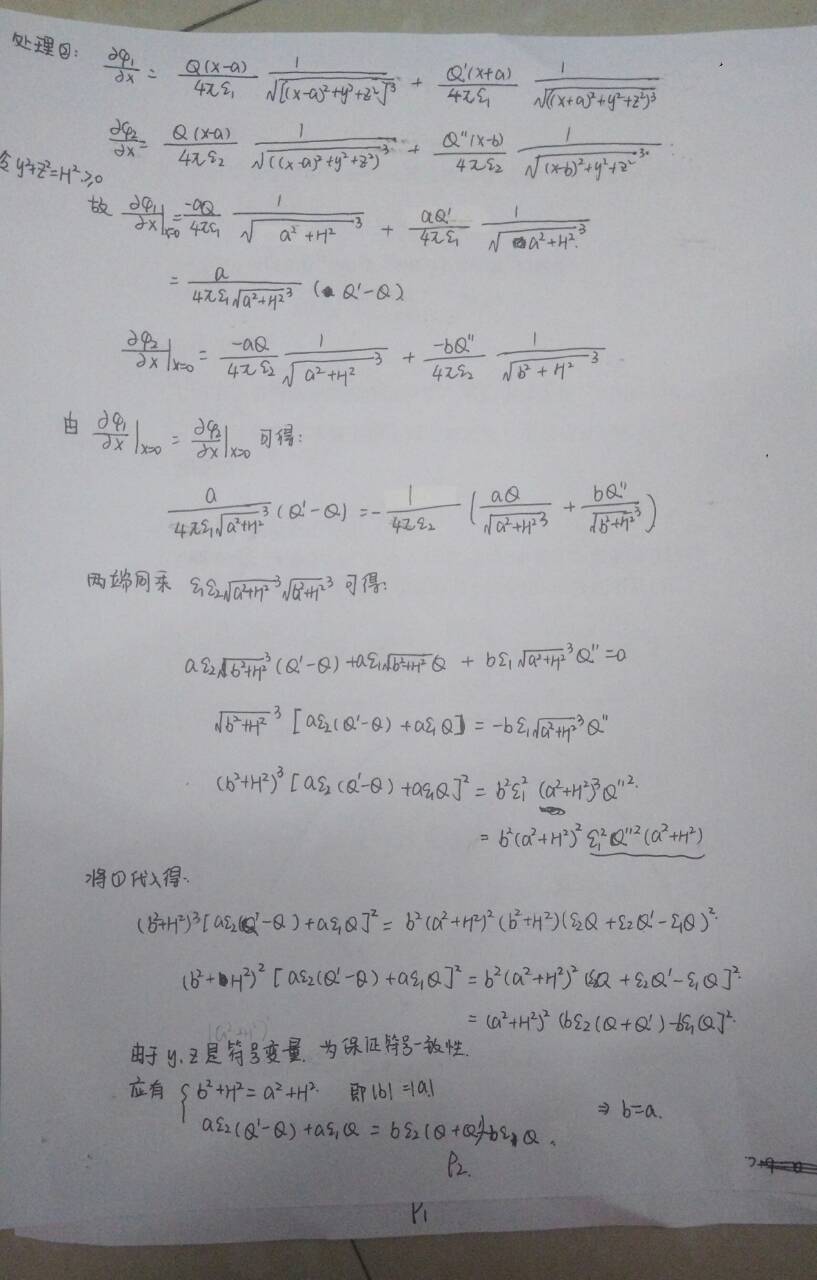 处理②: ∂φ₁/∂x = Q(x-a)/4πε₁ 1/√[(x-a)²+y²+z²]³ + Q′(x+a)/4πε₁ 1/√((x+a)²+y²+z²)³
∂φ₂/∂x = Q(x-a)/4πε₂ 1/√((x-a)²+y²+z²)³ + Q″(x-b)/4πε₂ 1/√(x-b)²+y²+z²³
令y²+z²=H²≥0
故 ∂φ₁/∂x|x=0 = -aQ/4πε₁ 1/√a²+H²³ + aQ′/4πε₁ 1/√a²+H²³
= a/4πε₁√a²+H²³ (Q′-Q)
∂φ₂/∂x|x=0 = -aQ/4πε₂ 1/√a²+H²³ + -bQ″/4πε₂ 1/√b²+H²³
由 ∂φ₁/∂x|x=0 = ∂φ₂/∂x|x=0 可得:
a/4πε₁√a²+H²³ (Q′-Q) = -1/4πε₂ (aQ/√a²+H²³ + bQ″/√b²+H²³)
两端同乘 ε₁ε₂√a²+H²³√b²+H²³ 可得:
aε₂√b²+H²³(Q′-Q)+aε₁√b²+H²Q + bε₁√a²+H²³Q″=0
√b²+H²³ [aε₂(Q′-Q)+aε₁Q] = -bε₁√a²+H²³Q″
(b²+H²)³[aε₂(Q′-Q)+aε₁Q]² = b²ε₁²(a²+H²)³Q″².
= b²(a²+H²)² ε₁²Q″²(a²+H²)
将①代入得.
(b²+H²)³[aε₂(Q′-Q)+aε₁Q]² = b²(a²+H²)²(b²+H²)(ε₂Q+ε₂Q′-ε₁Q)².
(b²+H²)²[aε₂(Q′-Q)+aε₁Q]² = b²(a²+H²)²[ε₂Q+ε₂Q′-ε₁Q]².
= (a²+H²)²(bε₂(Q+Q′)-bε₁Q]².
由于y,z是符号变量.为保证符号一致性.
应有 { b²+H²=a²+H². 即|b|=|a|
aε₂(Q′-Q)+aε₁Q = bε₂(Q+Q′)-bε₁Q. ⇒ b=a.
P2.
P1